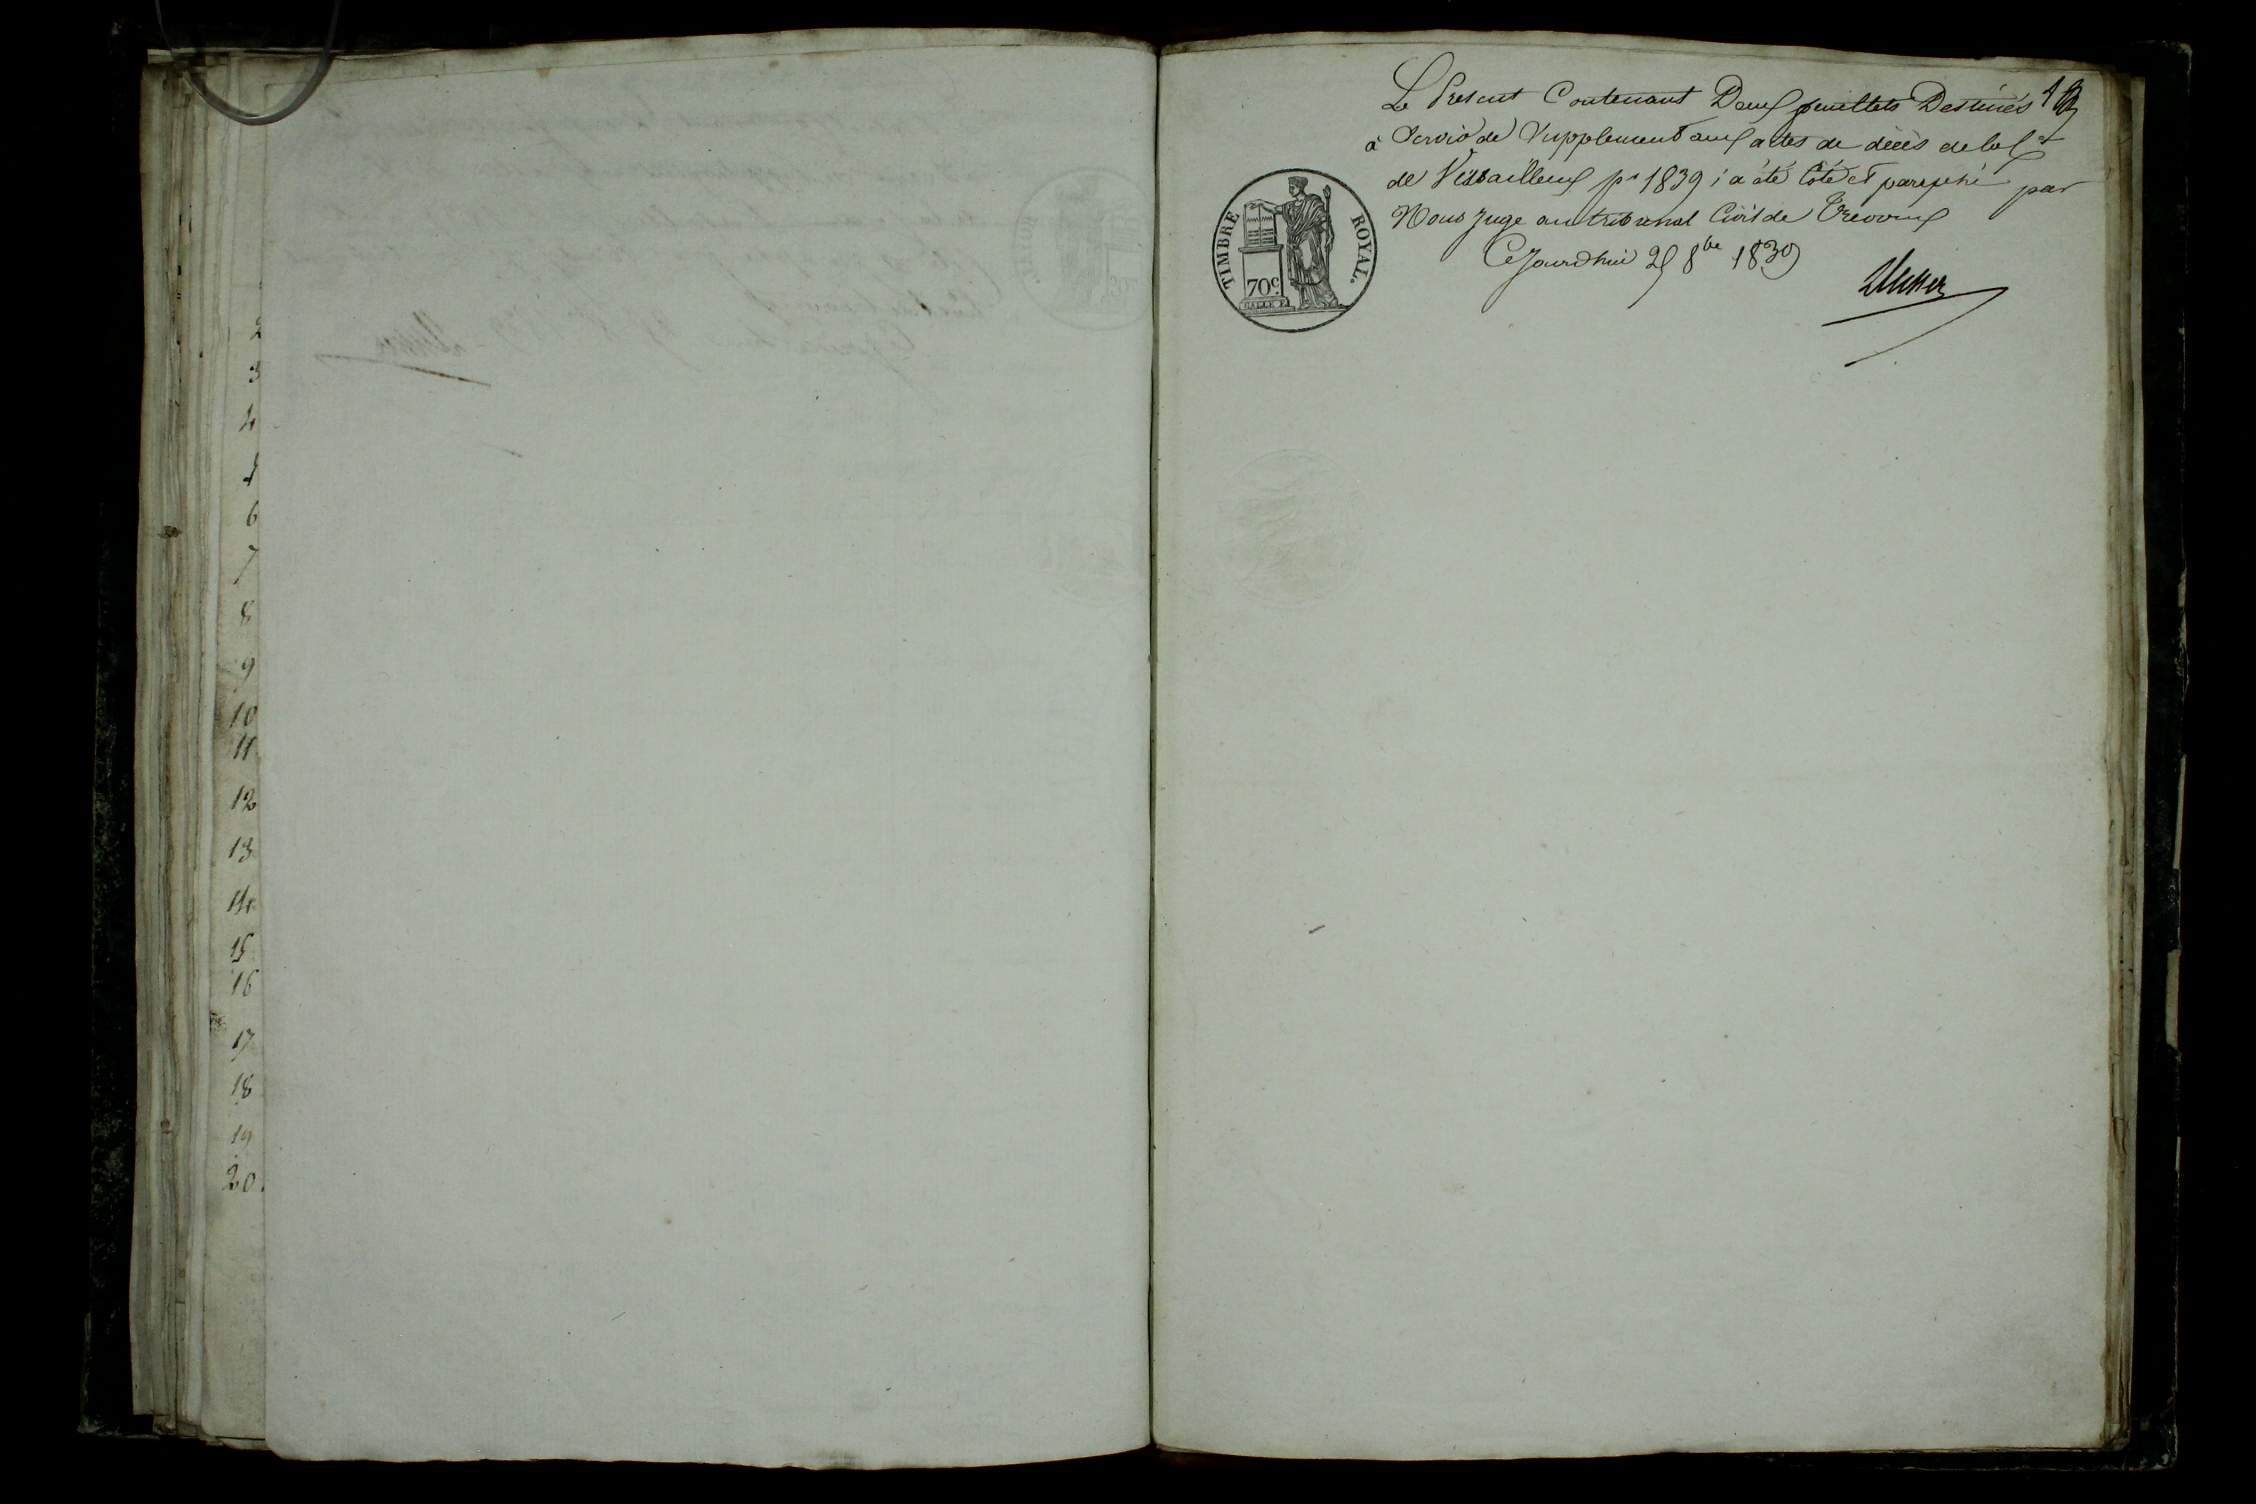 2
3
4
5
6
7
8
9
10
11
12
13
14
15
16
17
18
19
20.
Le Present Contenant Deux feuillets Destinés 1
à Servir de Supplement aux actes de décès de la Cne
de Versailleux pr 1839 ; a été Coté et paraphé par
Nous Juge au tribunal Civil de Trevoux
Ce Jourdhui 25 8bre 1839
TIMBRE ROYAL.
70c.